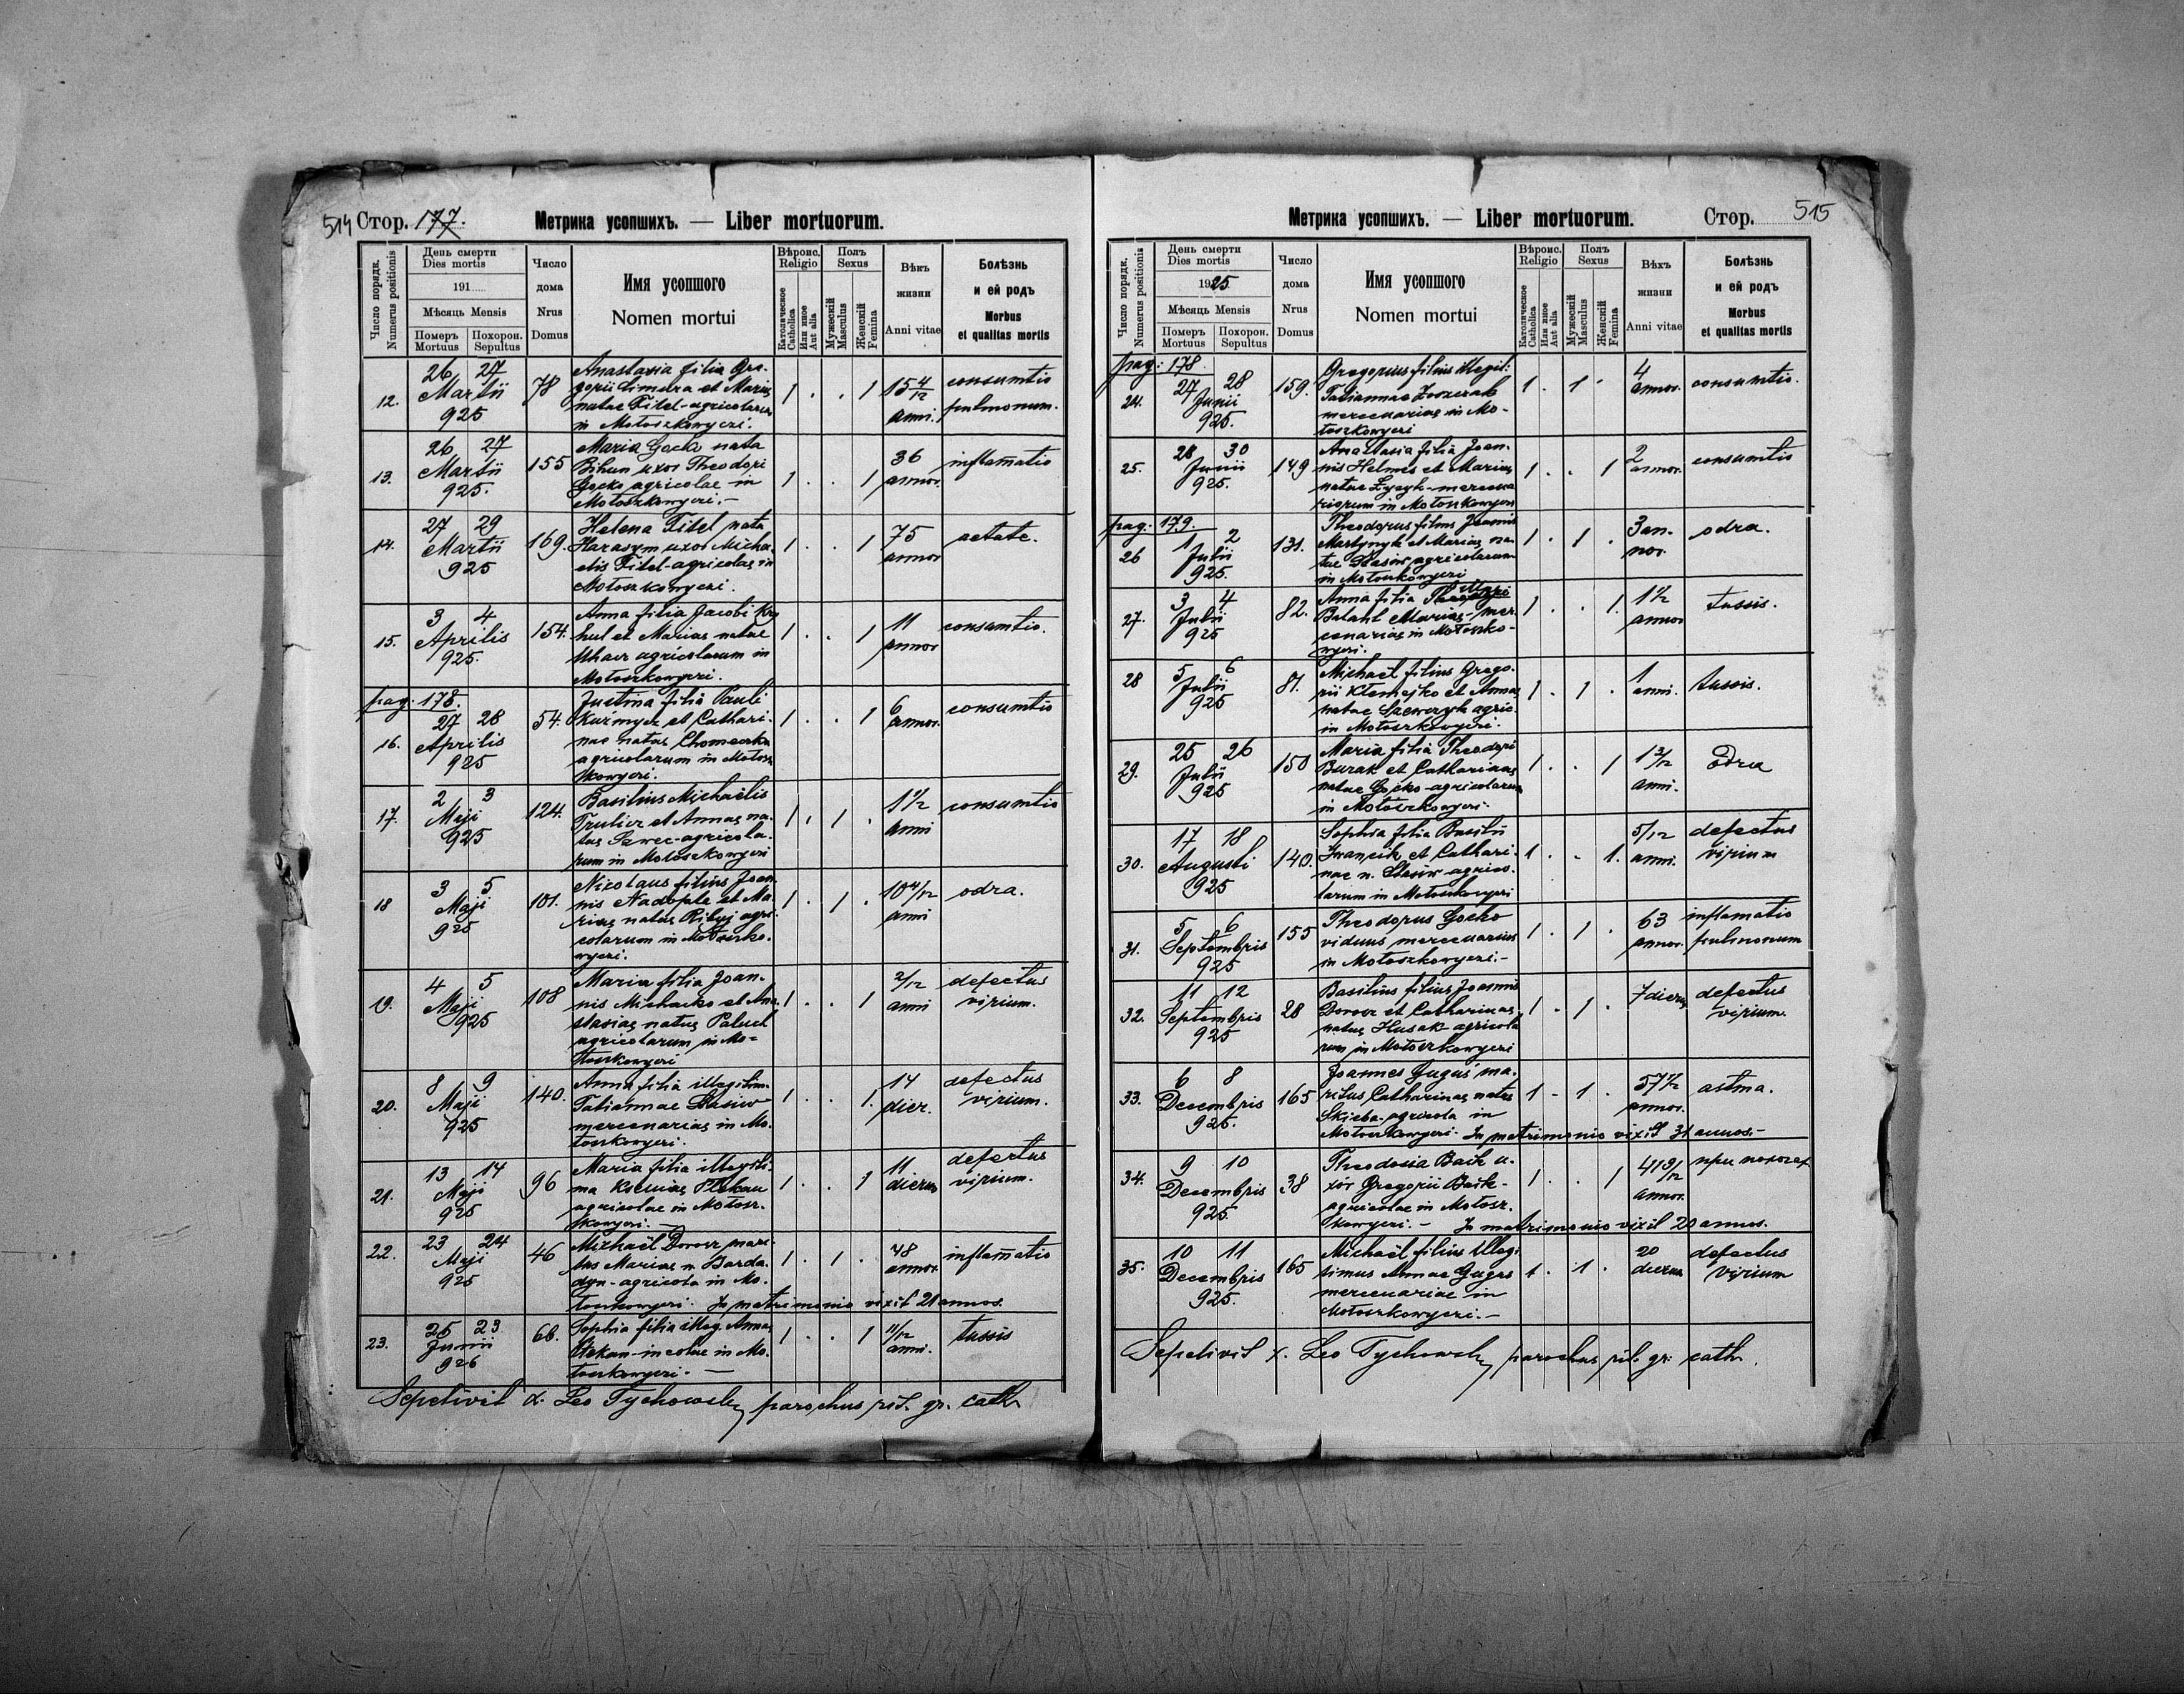 514 Стор. 177.
Метрика усопшихъ. — Liber mortuorum.
Число порядк.
Numerus positionis
День смерти
Dies mortis
191.....
Мѣсяць Mensis
Померъ
Mortuus
Похорон.
Sepultus
Число
дома
Nrus
Domus
Имя усопшого
Nomen mortui
Вѣроис.
Religio
Католическое
Catholica
Или иное
Aut alia
Полъ
Sexus
Мужескій
Masculus
Женскій
Femina
Вѣкъ
жизни
Anni vitae
Болѣзнь
и ей родъ
Morbus
et qualitas mortis
12. 26 27 Martii 925 78
Anastasia filia Gre-
gorii Cimura et Mariae
natae Fitel-agricolarum
in Mołoszkowyczi.
1 . . 1 15 4/12 anni. consumtio pulmonum.
13. 26 27 Martii 925. 155
Maria Gocko nata
Bihun uxor Theodori
Gocko agricolae in
Mołoszkowyczi.-
1 . . 1 36 annor. inflam̄atio
14. 27 29 Martii 925 169.
Helena Fitel nata
Harasym uxor Micha-
elis Fitel-agricolae in
Mołoszkowyczi.
1 . . 1 75 annor aetate.
15. 3 4 Aprilis 925. 154.
Anna filia Jacobi
et Mariae natae
agricolarum in
Mołoszkowyczi.
1 . . 1 11 annor consumtio.
pag: 178.
16. 27 28 Aprilis 925 54.
Justina filia Pauli
Kuźmycz et Cathari-
nae natae
agricolarum in Mołosz
kowyczi.
1 . . 1 6 annor. consumtio
17. 2 3 Maji 925 124.
Basilius Michaëlis
et Annae na-
tae Szwec-agricola-
rum in Mołoszkowyczi
1 . 1 . 1 1/2 anni consumtio
18 3 5 Maji 925 101.
Nicolaus filius Joan-
nis et Ma-
riae natae agri-
colarum in Mołoszko-
wyczi.
1 . 1 . 10 4/12 anni odra.
19. 4 5 Maji 925 108
Maria filia Joan-
nis et Ana-
stasiae natae Paluch
agricolarum in Mo-
łoszkowyczi
1 . . 1 2/12 anni defectus virium.
20. 8 9 Maji 925 140.
Anna filia illegitim.
Tatiannae Stasiw
mercenariae in Mo-
łoszkowyczi.
1 . . 1. 14 dier. defectus virium.
21. 13 14 Maji 925 96
Maria filia illegiti-
ma Kseniae
agricolae in Mołosz-
kowyczi.-
1 . . 1 11 dierum defectus virium.
22. 23 24 Maji 925 46
Michaël Dorosz mari-
tus Mariae n. Barda-
dyn-agricola in Mo-
łoszkowyczi. In matrimonio vixit 21 annos.
1 . 1 . 48 annor. inflam̄atio
23. 25 23 Junii 926 66.
Sophia filia illeg. Annae
incolae in Mo-
łoszkowyczi.-
1 . . 1 11/12 anni. tussis
Sepelivit x. Leo Tychowsky parochus rit. gr. cath.
Метрика усопшихъ. — Liber mortuorum.
Стор. 515
Число порядк.
Numerus positionis
День смерти
Dies mortis
1925
Мѣсяць Mensis
Померъ
Mortuus
Похорон.
Sepultus
Число
дома
Nrus
Domus
Имя усопшого
Nomen mortui
Вѣроис.
Religio
Католическое
Catholica
Или иное
Aut alia
Полъ
Sexus
Мужескій
Masculus
Женскій
Femina
Вѣкъ
жизни
Anni vitae
Болѣзнь
и ей родъ
Morbus
et qualitas mortis
pag: 178.
24. 27 28 Junii 925. 159.
Gregorius filius illegit:
Tatiannae
mercenariae in Mo-
łoszkowyczi
1 . 1 . 4 annor. consumtio.
25. 28 30 Junii 925. 149
Anastasia filia Joan-
nis Helmes et Mariae
natae Łysyk-mercena
riorum in Mołoszkowyczi
1 . . 1 2 annor. consumtio
pag: 179.
26 1 2 Julii 925. 131.
Theodorus filius Joannis
Martynyk et Mariae na-
tae Stasiw agricolarum
in Mołoszkowyczi
1 . 1 . 3 an-nor. odra.
27. 3 4 Julii 925 82.
Anna filia illegi
Mariae-mer-
cenariae in Mołoszko-
wyczi.
1 . . 1. 1 1/2 annor tussis.
28 5 6 Julii 925 81.
Michaël filius Grego-
rii et Annae
natae Szewczyk agric.
in Mołoszkowyczi.
1 . 1 . 1 anni. tussis.
29. 25 26 Julii 925 150
Maria filia Theodori
Burak et Catharinae
natae Gocko-agricolarum
in Mołoszkowyczi.
1 . . 1 1 3/12 anni. Odra
30. 17 18 Augusti 925 140.
Sophia filia Basilii
Iwancik et Cathari-
nae n. Stasiw agrico-
larum in Mołoszkowyczi
1 . . 1. 5/12 anni. defectus virium
31. 5 6 Septembris 925 155
Theodorus Gocko
viduus mercenarius
in Mołoszkowyczi.-
1 . 1 . 63 annor. inflamatio pulmonum
32. 11 12 Septembris 925 28
Basilius filius Joannis
Dorosz et Catharinae
natae Husak agricola
rum in Mołoszkowyczi
1 . 1 . 7 dierum defectus virium.
33. 6 8 Decembris 925. 165
Joannes Guguś ma-
ritus Catharinae natae
Skiba-agricola in
Mołoszkowyczi. In matrimonio vixit 31 annos.-
1 - 1 . 57 1/2 annor. astma.
34. 9 10 Decembris 925. 38
Theodosia Baik u-
xor Gregorii Baik-
agricolae in Mołosz-
kowyczi.- In matrimonio vixit 20 annos.
1 . . 1 41 9/12 annor. при
35. 10 11 Decembris 925. 165
Michaël filius illegi-
timus Annae Gugus
mercenariae in
Mołoszkowyczi.-
1 . 1 . 20 dierum defectus virium
Sepelivit x. Leo Tychowsky parochus rit. gr. cath.